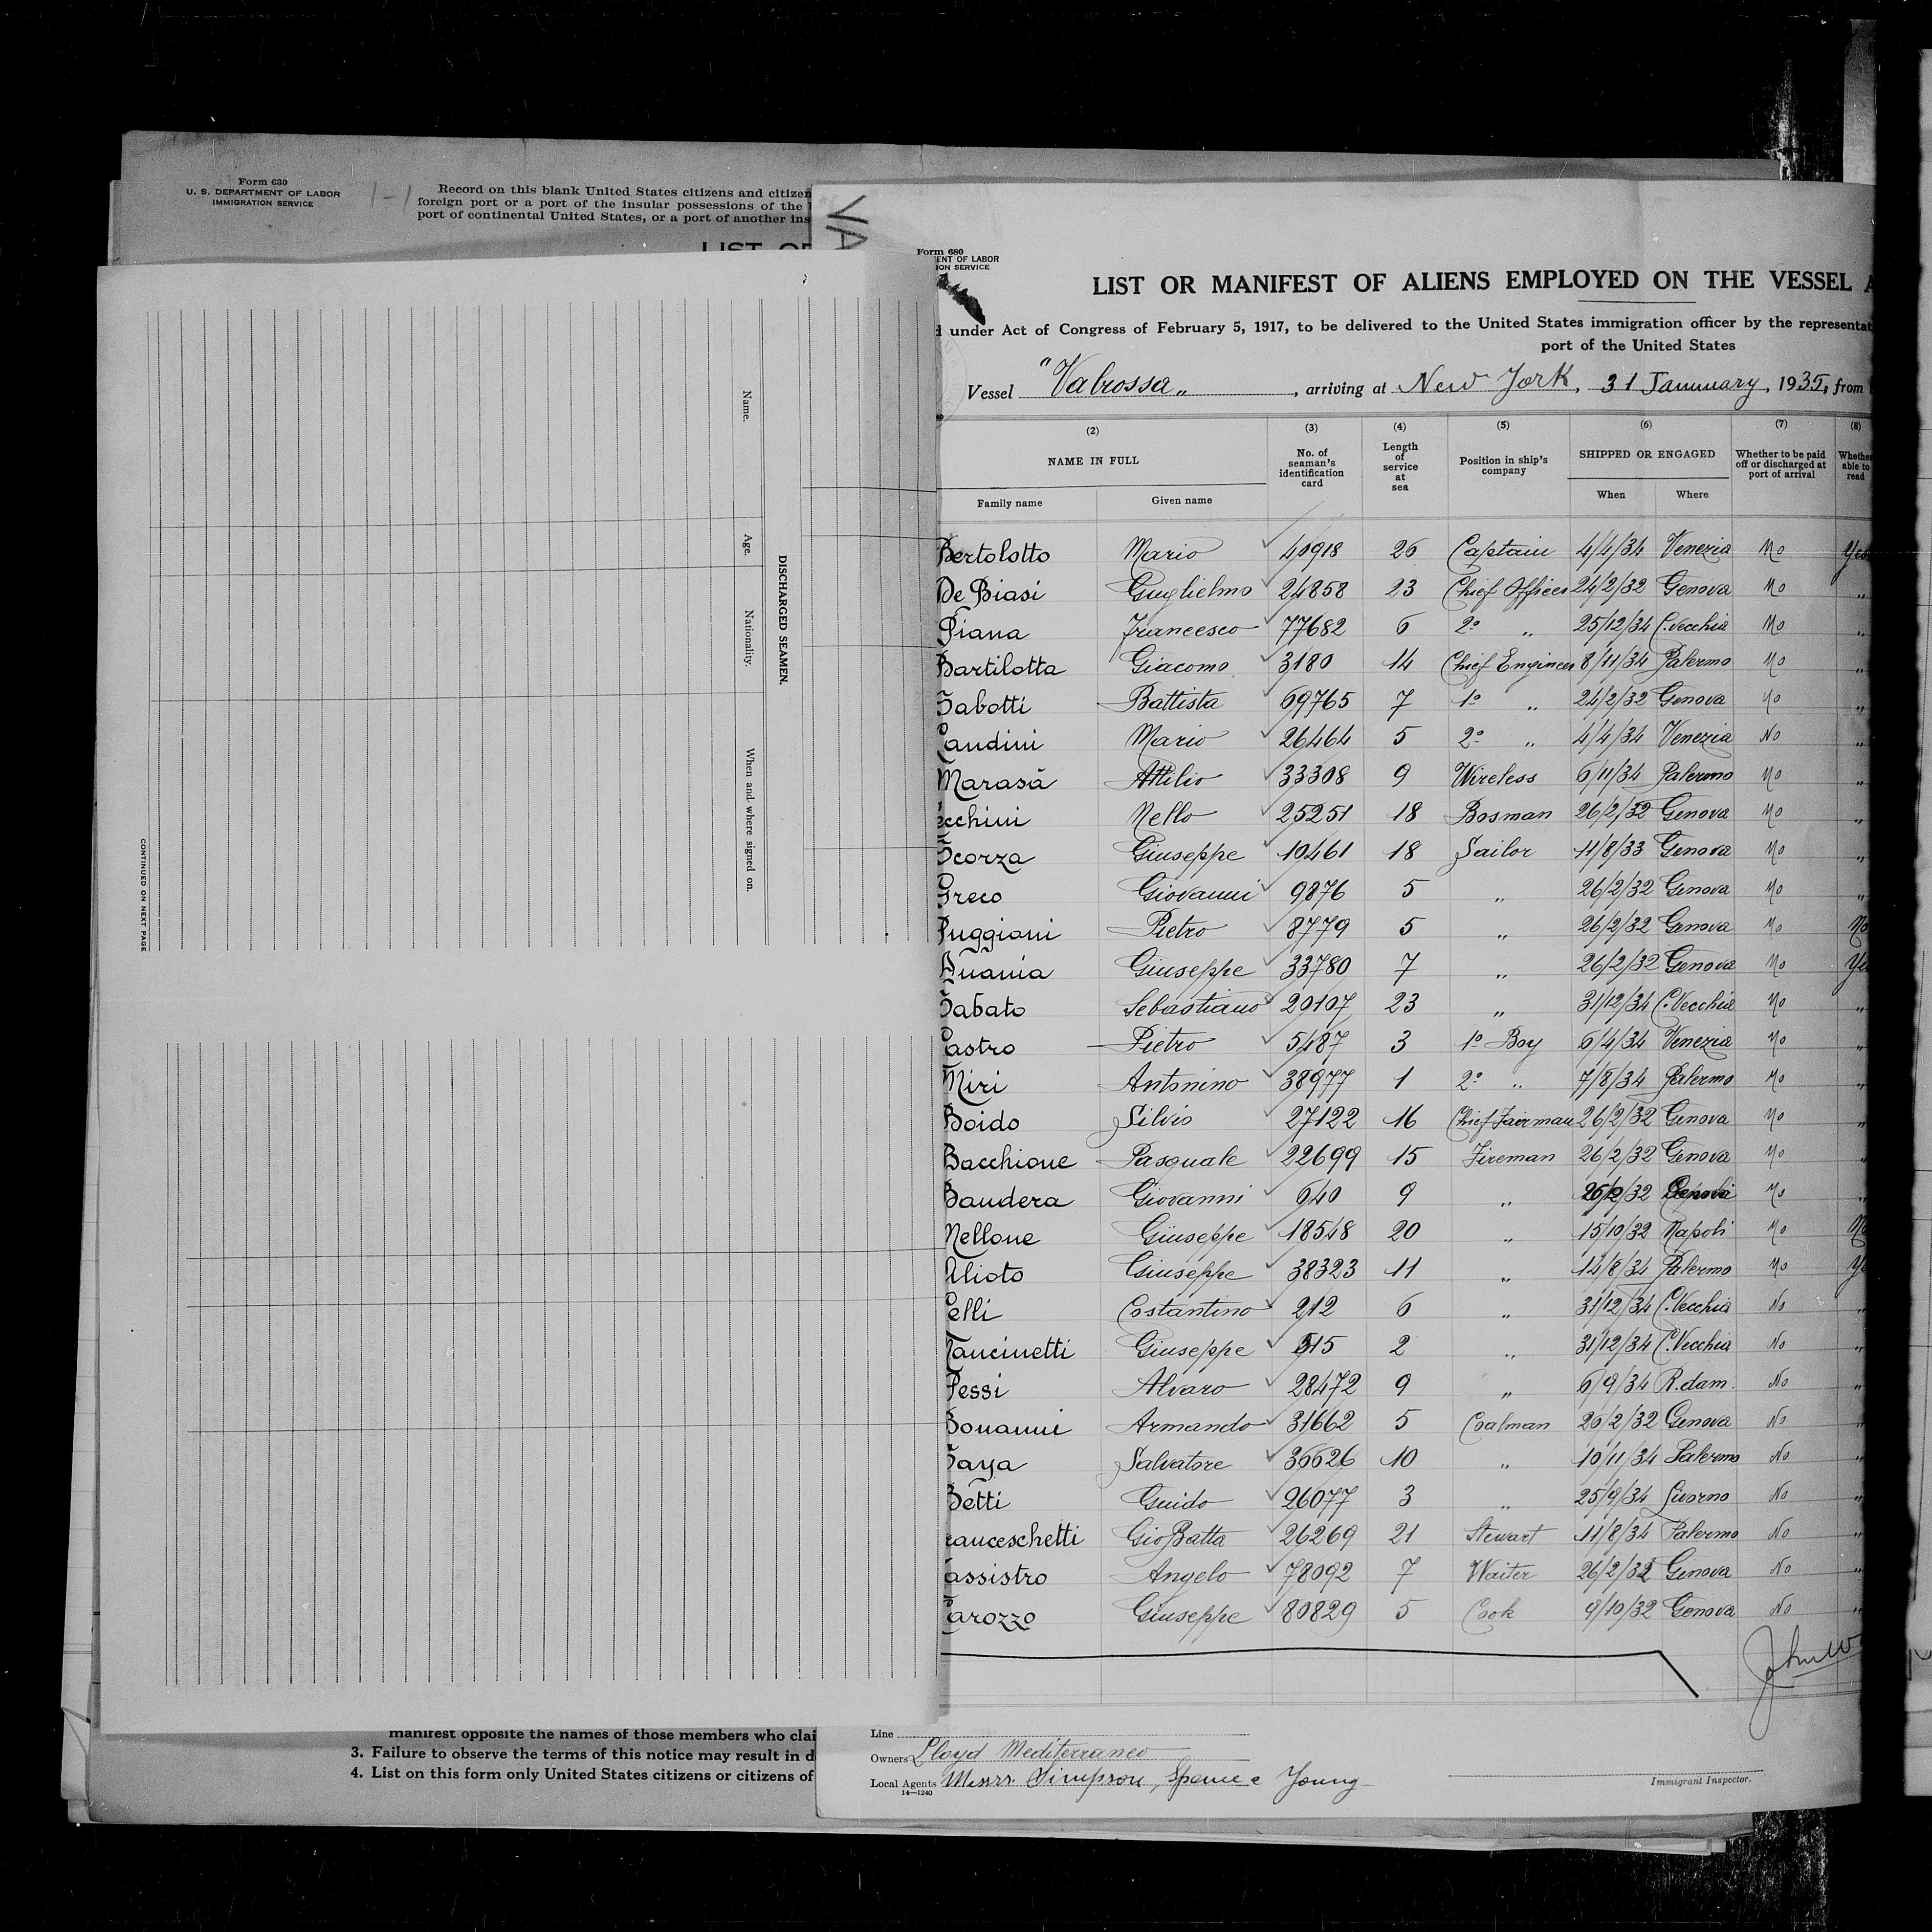 Form 630
U. S. DEPARTMENT OF LABOR
IMMIGRATION SERVICE
1-1
Record on this blank United States citizens and citizen
foreign port or a port of the insular possessions of the
port of continental United States, or a port of another ins
LIST OF
VA
Form 680
ENT OF LABOR
ION SERVICE
LIST OR MANIFEST OF ALIENS EMPLOYED ON THE VESSEL A
under Act of Congress of February 5, 1917, to be delivered to the United States immigration officer by the representat
port of the United States
Vessel "Valrossa", arriving at New York, 31 Januuary, 1935, from
(2) (3) (4) (5) (6) (7) (8)
NAME IN FULL No. of seaman's identification card Length of service at sea Position in ship's company SHIPPED OR ENGAGED Whether to be paid off or discharged at port of arrival Whether able to read
Family name Given name When Where
Bertolotto Mario 40918 26 Captain 4/4/34 Venezia No Yes
De Biasi Guglielmo 24858 23 Chief Officer 24/2/32 Genova No „
Piana Francesco 77682 6 2º „ 25/12/34 C.vecchia No „
Bartilotta Giacomo 3180 14 Chief Engineer 8/11/34 Palermo No „
Sabotti Battista 69765 7 1º „ 24/2/32 Genova No „
Landini Mario 26464 5 2º „ 4/4/34 Venezia No „
Marasà Attilio 33308 9 Wireless 6/11/34 Palermo No „
ecchini Nello 25251 18 Bosman 26/2/32 Genova No „
Scorza Giuseppe 10461 18 Sailor 11/8/33 Genova No „
Greco Giovanni 9876 5 „ 26/2/32 Genova No „
Puggioni Pietro 8779 5 „ 26/2/32 Genova No No
Anania Giuseppe 33780 7 „ 26/2/32 Genova No Ye
Sabato Sebastiano 20107 23 „ 31/12/34 C.Vecchia No „
Castro Pietro 5487 3 1º Boy 6/4/34 Venezia No „
Miri Antonino 38977 1 2º „ 7/8/34 Palermo No „
Boido Silvio 27122 16 Chief Fairman 26/2/32 Genova No „
Bacchione Pasquale 22699 15 Fireman 26/2/32 Genova No „
Bandera Giovanni 640 9 „ 26/2/32 Genova No „
Mellone Giuseppe 18548 20 „ 15/10/32 Napoli No No
Alioto Giuseppe 38323 11 „ 14/8/34 Palermo No Ye
Celli Costantino 212 6 „ 31/12/34 C.Vecchia No „
Mancinetti Giuseppe 515 2 „ 31/12/34 C.Vecchia No „
Pessi Alvaro 28472 9 „ 6/9/34 R.dam. No „
Bonanni Armando 31662 5 Coalman 26/2/32 Genova No „
Saya Salvatore 36626 10 „ 10/11/34 Palermo No „
Betti Guido 26077 3 „ 25/9/34 Livorno No „
ranceschetti GioBatta 26269 21 Stewart 11/8/34 Palermo No „
assistro Angelo 78092 7 Waiter 26/2/32 Genova No „
arozzo Giuseppe 80829 5 Cook 9/10/32 Genova No „
John W
Line
Owners Lloyd Mediterraneo
Local Agents Messrs. Simpson, Spence e Young
14—1240
Immigrant Inspector.
Name.
Age.
Nationality.
When and where signed on.
DISCHARGED SEAMEN.
CONTINUED ON NEXT PAGE
manifest opposite the names of those members who clai
3. Failure to observe the terms of this notice may result in d
4. List on this form only United States citizens or citizens of